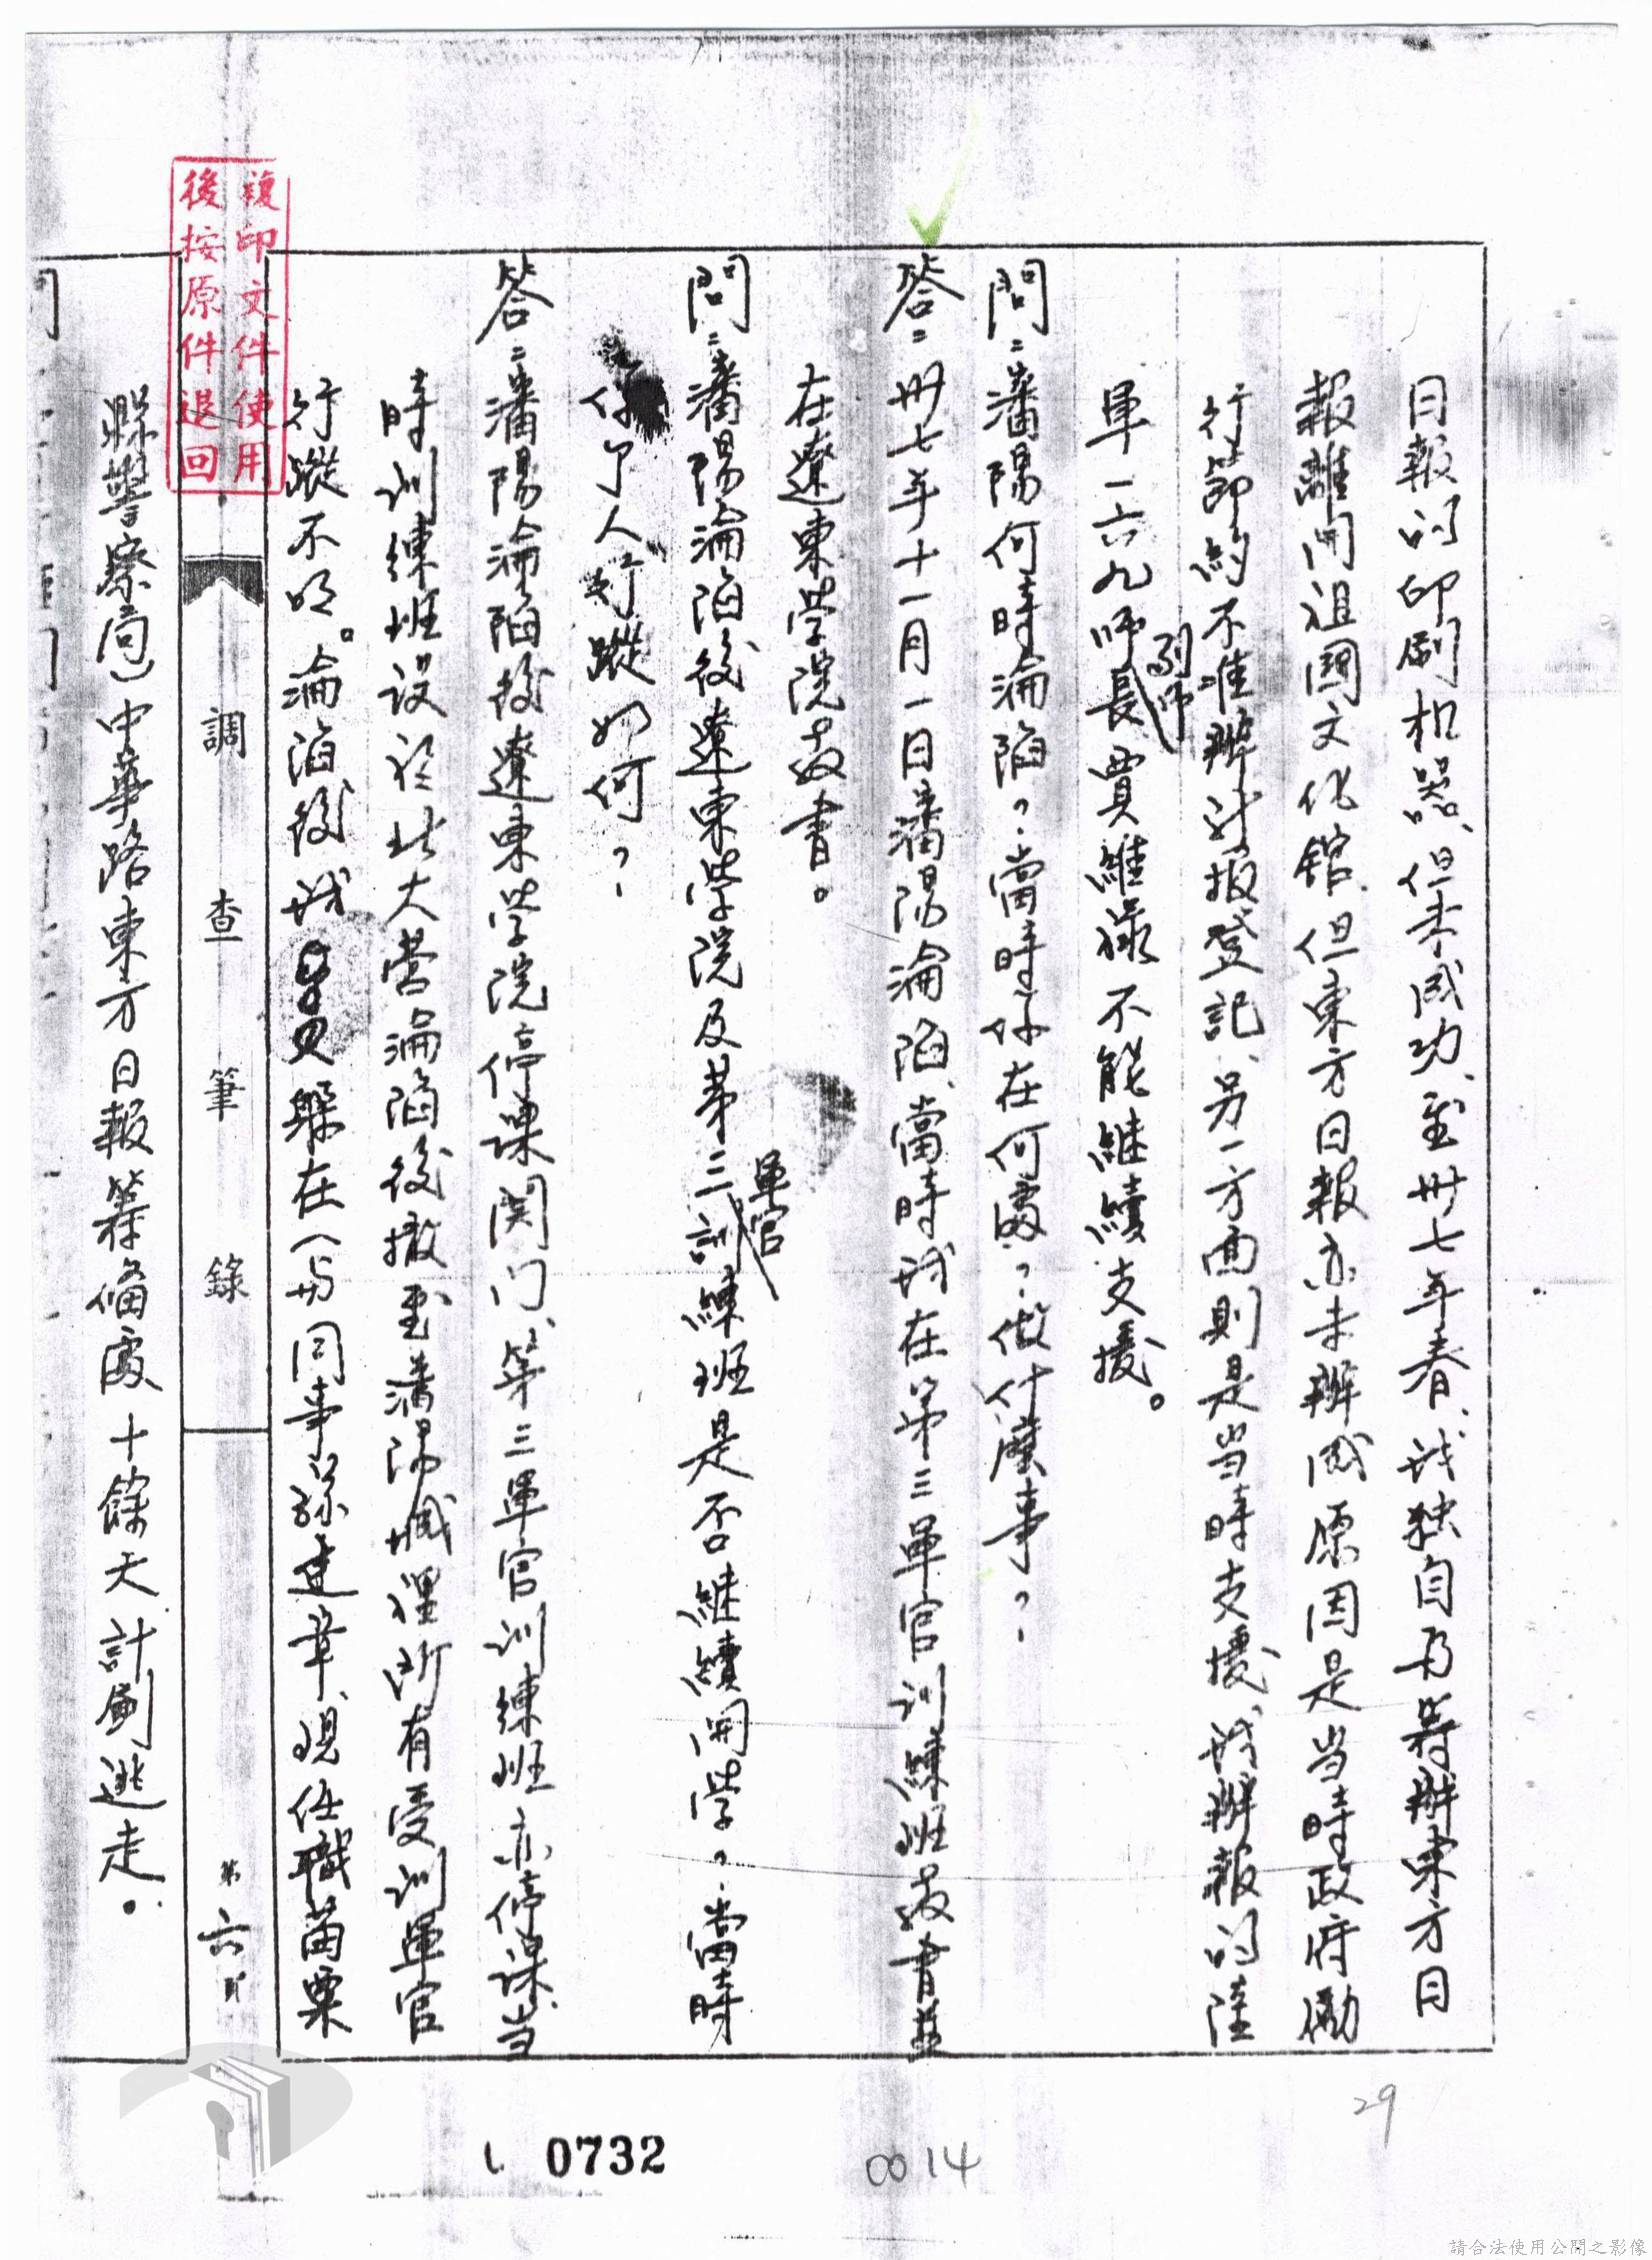 日報的印刷机器、但未成功、至卅七年春、我独自乃籌辦東方日
報離開祖國文化館、但東方日報亦未辦成原因是当時政府勵
行節約不准辦新报登記、另一方面則是当時支援我辦報的陸
軍一六九師長賈維祿不能継續支援。
副師
問：瀋陽何時淪陷？當時你在何處？做什麼事？
答：卅七年十一月一日瀋陽淪陷、當時我在第三軍官訓練班教書並
在遼東学院教書。
問：瀋陽淪陷後遼東学院及第三訓練班是否継續開学？當時
軍官
你个人行蹤如何？
答：瀋陽淪陷後遼東学院停課関门、第三軍官训练班亦停课、当
時训練班设於北大营淪陷後撤至瀋陽城裡所有受训軍官
行蹤不明。淪陷後我躲在(与同事孫建章、現任職苗栗
調查筆錄
第六頁
縣警察局)中華路東方日報籌備處十餘天計劃逃走。
複印文件使用
後按原件退回
0732
0014
29
請合法使用公開之影像